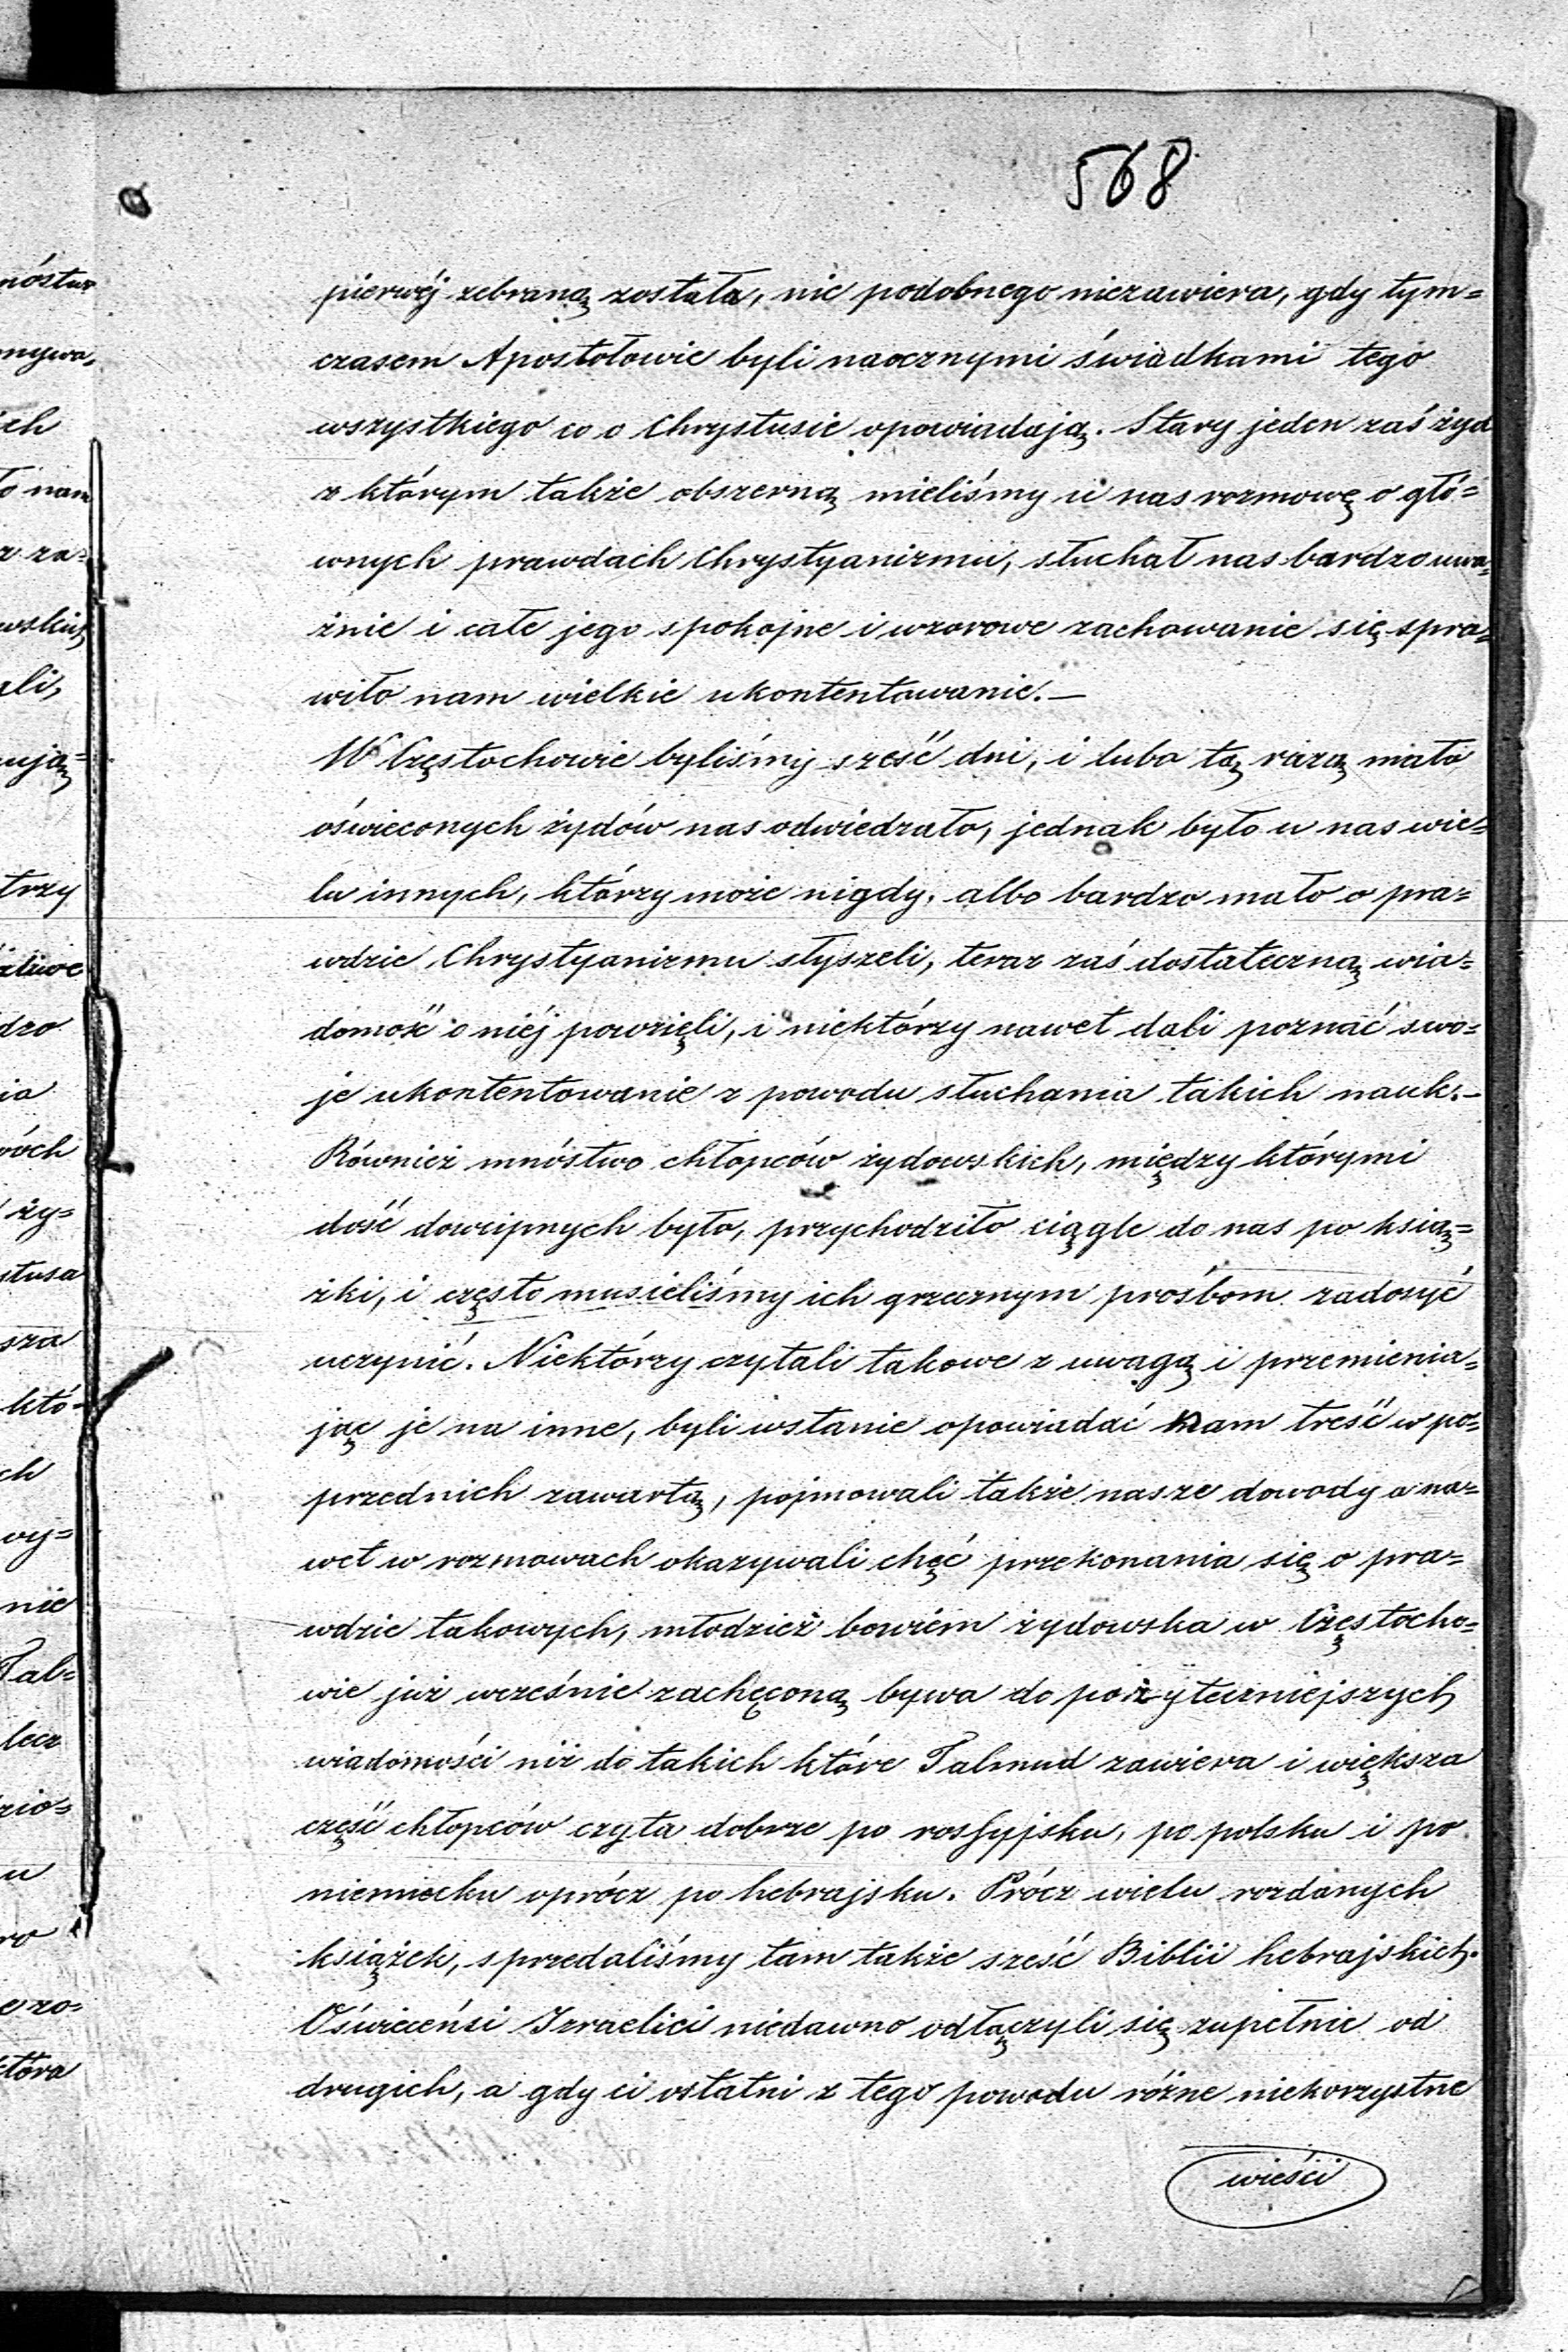 568
pierwéj zebraną została, nic podobnego niezawiera, gdy tym=
czasem Apostołowie byli naocznymi świadkami tego
wszystkiego co o Chrystusie opowiadają. Stary jeden zaś żyd
z którym także obszerną mieliśmy u nas rozmowę o głó=
wnych prawdach Chrystyanizmu, słuchał nas bardzo uwa=
żnie i całe jego spokojne i wzorowe zachowanie się spra=
wiło nam wielkie ukontentowanie.—
W Częstochowie byliśmy sześć dni, i lubo tą razą mało
oświeconych żydów nas odwiedzało, jednak było u nas wie=
lu innych, którzy może nigdy, albo bardzo mało o pra=
wdzie Chrystyanizmu słyszeli, teraz zaś dostateczną wia=
domość o niéj powzięli, i niektórzy nawet dali poznać swo=
je ukontentowanie z powodu słuchania takich nauk.—
Również mnóstwo chłopców żydowskich, między którymi
dość dowcipnych było, przychodziło ciągle do nas po ksią=
żki, i często musieliśmy ich grzecznym prośbom zadosyć
uczynić. Niektórzy czytali takowe z uwagą i przemienia=
jąc je na inne, byli wstanie opowiadać nam treść w po=
przednich zawartą, pojmowali także nasze dowody a na=
wet w rozmowach okazywali chęć przekonania się o pra=
wdzie takowych, młodzież bowiem żydowska w Częstocho=
wie już wcześnie zachęconą bywa do pożyteczniejszych
wiadomości niż do takich które Talmud zawiera i większa
część chłopców czyta dobrze po rossyjsku, po polsku i po
niemiecku oprócz po hebrajsku. Prócz wielu rozdanych
książek, sprzedaliśmy tam także sześć Biblii hebrajskich.
Oświeceńsi Izraelici niedawno odłączyli się zupełnie od
drugich, a gdy ci ostatni z tego powodu różne niekorzystne
wieści